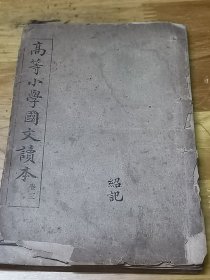 高等小學國文讀本 卷三
紹記